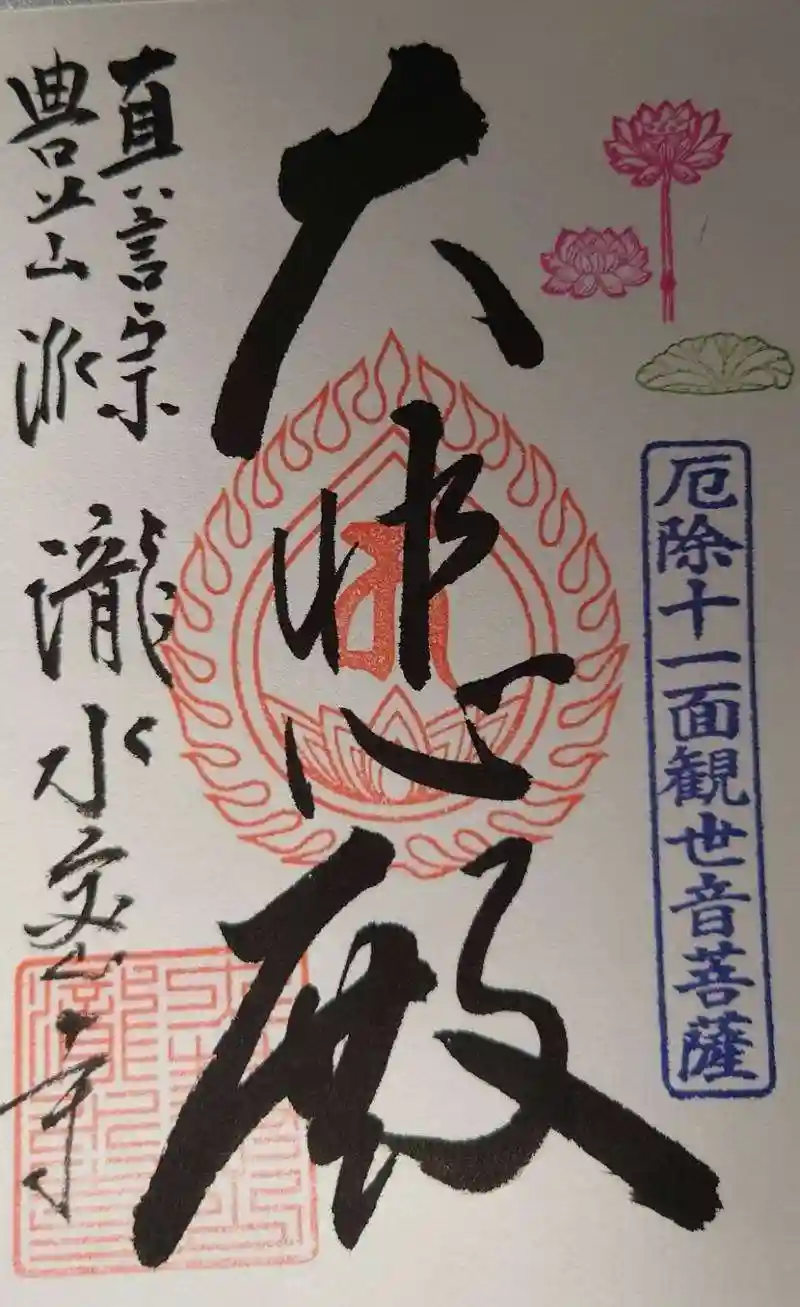 厄除十一面観世音菩薩
大悲殿
真言宗
豊山派
瀧水密寺